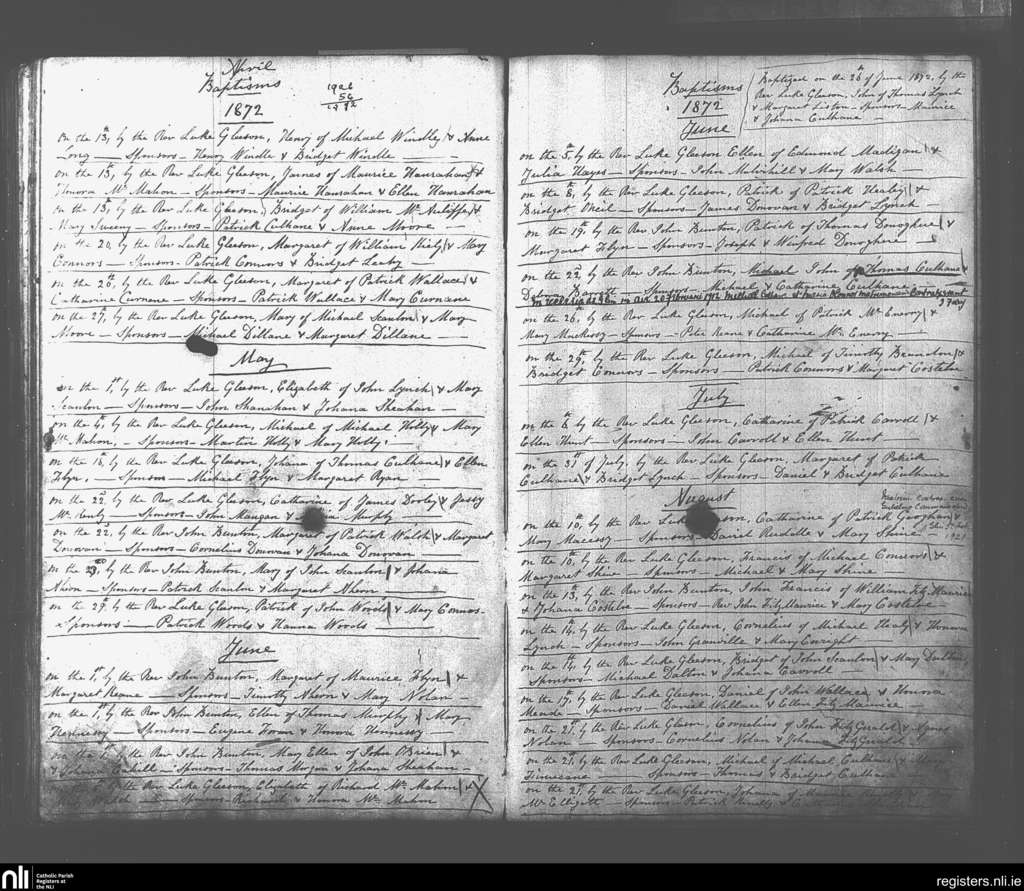 April
Baptisms
1872
1928
56
1872
on the 13th, by the Rev Luke Gleeson, Henry of Michael Windle & Anne
Long — Sponsors — Henry Windle & Bridget Windle
on the 13, by the Rev Luke Gleeson, James of Maurice Hanrahan &
Honora Mc Mahon — Sponsors — Maurice Hanrahan & Ellen Hanrahan
on the 13, by the Rev Luke Gleeson, Bridget of William Mc Auliffe &
Mary — Sponsors — Patrick Culhane & Anne Moore —
on the 20, by the Rev Luke Gleeson, Margaret of William Kiely & Mary
Connors — Sponsors — Patrick Connors & Bridget Leahy —
on the 20th, by the Rev Luke Gleeson, Margaret of Patrick Wallace &
Catharine Curnane — Sponsors — Patrick Wallace & Mary Curnane
on the 27, by the Rev Luke Gleeson, Mary of Michael Scanlon & Mary
Moore — Sponsors — Michael Dillane & Margaret Dillane —
May
on the 1st, by the Rev Luke Gleeson, Elizabeth of John Lynch & Mary
Scanlon — Sponsors — John Shanahan & Johana Sheahan —
on the 4, by the Rev Luke Gleeson, Michael of Michael Holly & Mary
Mc Mahon, — Sponsors — Martin Holly & Mary Holly
on the 18, by the Rev Luke Gleeson, Johana of Thomas Culhane & Ellen
Flyn. — Sponsors — Michael Flyn & Margaret Ryan
on the 22, by the Rev. Luke Gleeson, Catharine of James Dooley &
Mc — Sponsors — John Mangan & Murphy
on the 22, by the Rev John Bunton, Margaret of Patrick Walsh & Margaret
Donovan — Sponsors — Cornelius Donovan & Johana Donovan
on the 23rd, by the Rev John Bunton, Mary of John Scanlon & Johana
Nhern — Sponsors — Patrick Scanlon & Margaret Nhern —
on the 29th, by the Rev Luke Gleeson, Patrick of John Woods & Mary Connors
Sponsors — Patrick Woods & Hanna Woods
June
on the 1st, by the Rev John Bunton, Margaret of Maurice Flyn &
Margaret Keane — Sponsors — Timothy Nhern & Mary Nolan —
on the 1st, by the Rev John Bunton, Ellen of Thomas Murphy & Mary
Hennessy — Sponsors — Eugene Horan & Honora Hennessy —
on the by the Rev John Bunton, Mary Ellen of John O'Brien &
Johana Cahill — Sponsors — Thomas Morgan & Johana Sheehan —
by the Rev Luke Gleeson, Elizabeth of Richard Mc Mahon &
Walsh — Sponsors Richard & Honora Mc Mahon
Baptisms
1872
June
Baptized on the 26th of June 1872, by the
Rev Luke Gleeson, John of Thomas Lynch
& Margaret Liston — Sponsors Maurice
& Johana Culhane —
on the 5th, by the Rev Luke Gleeson Ellen of Edmond Madigan &
Julia Hayes — Sponsors — John Mulvihill & Mary Walsh —
on the 8, by the Rev Luke Gleeson, Patrick of Patrick Healy &
Bridget Oneil — Sponsors — James Donovan & Bridget Lynch —
on the 19, by the Rev John Bunton, Patrick of Thomas Donoghere &
Margaret Flyn — Sponsors — Joseph & Winfred Donoghere —
on the 22, by the Rev John Bunton, Michael John of Thomas Culhane &
Barrett — Sponsors — Michael & Catharine Culhane
In ecclesia
on the 26, by the Rev Luke Gleeson, Michael of Patrick Mc Enery &
Mary — Sponsors — Peter Keane & Catharine Mc Enery
on the 29, by the Rev Luke Gleeson, Michael of Timothy &
Bridget Connors — Sponsors — Patrick Connors & Margaret Costelloe
July
on the 6 by the Rev Luke Gleeson, Catharine of Patrick Carroll &
Ellen Hunt — Sponsors — John Carroll & Ellen Hunt —
on the 31st of July, by the Rev Luke Gleeson, Margaret of Patrick
Culhane & Bridget Lynch — Sponsors — Daniel & Bridget Culhane
August
1921
on the 10, by the Rev Luke Gleeson, Catharine of Patrick Geoghan &
Mary — Sponsors — Daniel & Mary Shine —
on the 10, by the Rev Luke Gleeson, Francis of Michael Connors &
Margaret Shine — Sponsors — Michael & Mary Shine —
on the 13, by the Rev John Bunton, John Francis of William Fitz Maurice
& Johana Costeloe — Sponsors — Rev John Fitz Maurice & Mary Costeloe —
on the 14, by the Rev Luke Gleeson, Cornelius of Michael Healy & Honora
Lynch — Sponsors — John Granville & Mary Enright —
on the 14, by the Rev Luke Gleeson, Bridget of John Scanlon & Mary Dalton
Sponsors — Michael Dalton & Johana Carroll
on the 17, by the Rev Luke Gleeson, Daniel of John Wallace & Honora
Meade — Sponsors — Daniel Wallace & Ellen Fitz Maurice —
on the 21, by the Rev Luke Gleeson, Cornelius of John Fitz Gerald & Agnes
Nolan — Sponsors — Cornelius Nolan & Johana Fitz Gerald
on the 21, by the Rev Luke Gleeson, Michael of Michael Culhane & Mary
Finucane — Sponsors — Thomas & Bridget Culhane —
on the 21, by the Rev Luke Gleeson, Johanna of Maurice
Mc Elligott — Sponsors — Patrick
nli
Catholic Parish
Registers at
the NLI
registers.nli.ie